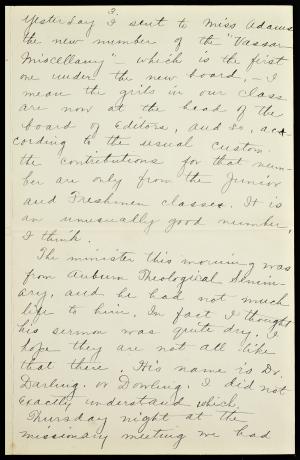 3.
Yesterday I sent to Miss Adams
the new number of the "Vassar
Miscellany" - which is the first
one under the new board, - I
mean the girls in our class
are now at the head of the
board of Editors, and so, ac-
cording to the usual custom
the contributions for that num-
ber are only from the Junior
and Freshmen classes. It is
an unusually good number,
I think.
The minister this morning was
from Auburn Theological Semin-
ary, and he had not much
life to him. In fact I thought
his sermon was quite dry. I
hope they are not all like
that there. His name is Dr.
Darling. or Dowling. I did not
exactly understand which.
Thursday night at the
missionary meeting we had